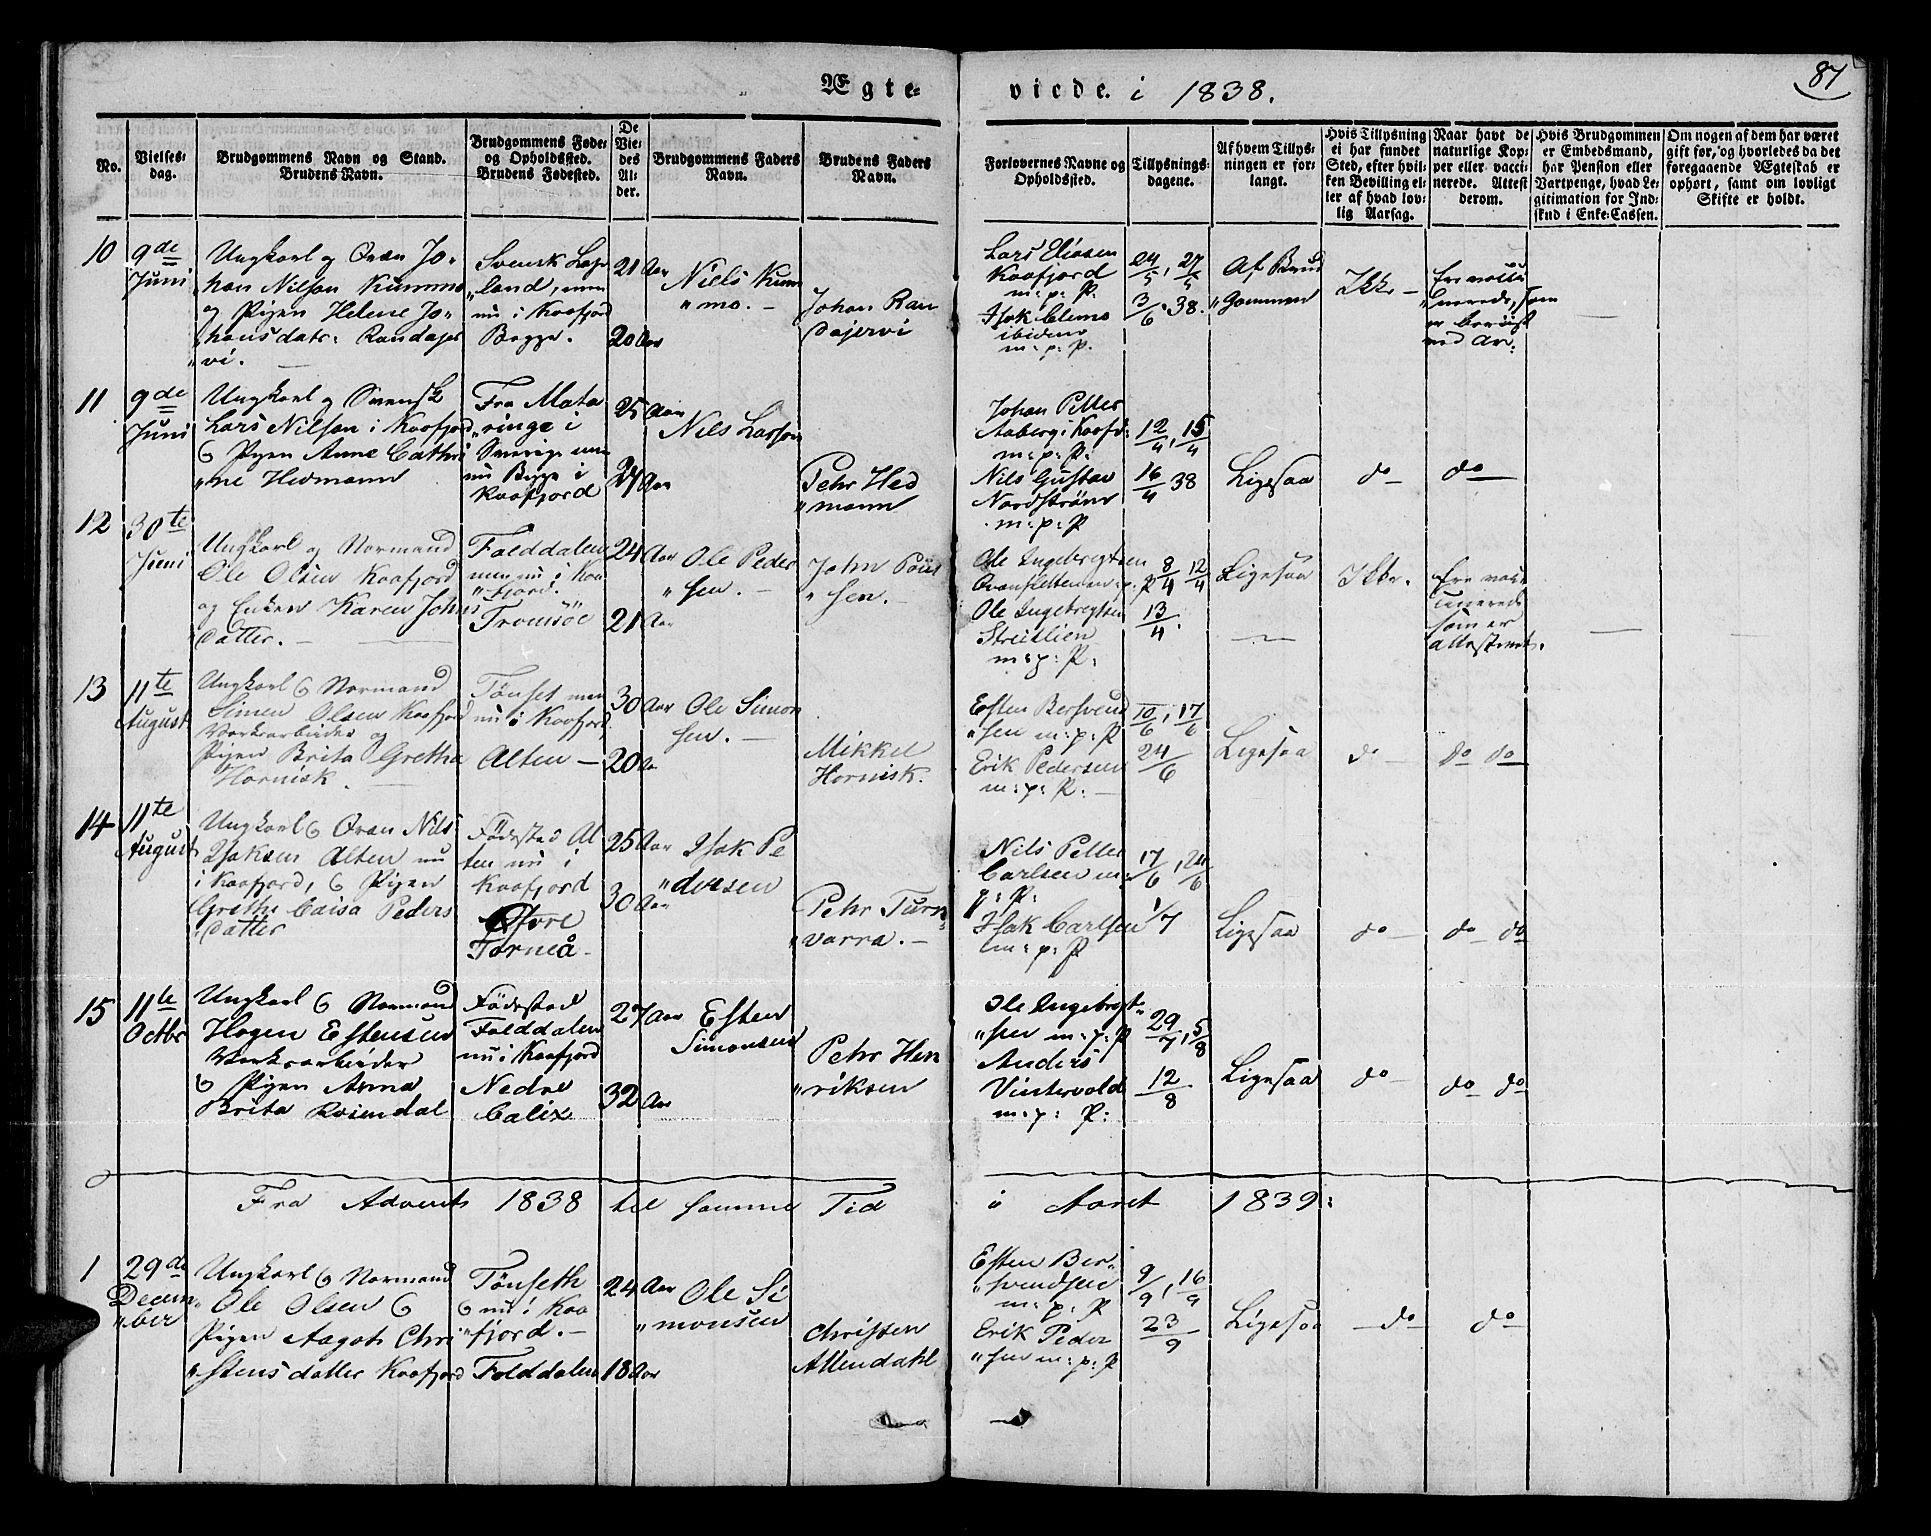 Ægte- viede i 1838.
87
No.
Vielses-
dag.
Brudgommens Navn og Stand.
Brudens Navn.
Brudgommens Føde-
og Opholdssted.
Brudens Fødested.
De
Vie-
des
Al-
der.
Brudgommens Faders
Navn.
Brudens Faders
Navn.
Forlovernes Navne og
Opholdssted.
Tillysnings-
dagene.
Af hvem Tillys-
ningen er for-
langt.
Hvis Tillysning
ei har fundet
Sted, efter hvil-
ken Bevilling el-
ler af hvad lov-
lig Aarsag.
Naar havt de
naturlige Kop-
per eller vacci-
nerede. Attest
derom.
Hvis Brudgommen
er Embedsmand,
har Pension eller
Vartpenge, hvad Le-
gitimation for Ind-
skud i Enke-Cassen.
Om nogen af dem har været
gift før, og hvorledes da det
foregaaende Ægteskab er
ophørt, samt om lovligt
Skifte er holdt.
10
9de
Juni
Ungkarl og Qvæn Jo-
han Nilsen Kummo
og Pigen Helene Jo-
hansdatr: Randajer
vi.
Svensk Lap
land, men
nu i Kaafjord
Begge.
21 Aar
20 Aar
Niels Kum
"mo. -
Johan Ran
dajervi
Lars Eliasen
Kaafjord
m. p. P.
Isak Clemo
ibidem
m. p. P.
24/5, 27/5
3/6. 38.
Af Brud
"gommen
Ikke -
Ere vacci
"nerede, som
er beviist
ved Att:
11
9de
Juni
Ungkarl og Svensk
Lars Nilsen i Kaafjord
& Pigen Anne Cathri
"ne Hedmann
Fra Mata
"ringe i
Sverige men
nu Begge i
Kaafjord
25 Aar
27 Aar
Nils Larsen
Pehr Hed
"mann
Johan Petter
Aaberg i Kaafd:
m: p: P:
Nils Gustav
Nordstrøm
m: p: P
12/4, 15/4
16/4 38
Ligesaa
do -
do
12
30te
Juni
Ungkarl og Normand
Ole Olsen Kaafjord
og Enken Karen Johns
datter. -
Folddalen
men nu i Kaa
"fjord.
Tromsöe
24 Aar
21 Aar
Ole Peder
"sen. -
John Pöül
"sen. -
Ole Ingebregtsen
m: p: P
Ole Ingebregtsen
Streitlien
m: p: P:
8/4 12/4
13/4.
Ligesaa
Ikke.
Ere vac
"cinerede
som er
attesteret.
13
11te
August
Ungkarl & Normand
Simen Olsen Kaafjord
Værksarbeider og
Pigen Brita Grethe
Hornisk.
Tönset men
nu i Kaafjord
Alten -
30 Aar
20 Aar
Ole Simon
sen. -
Mikkel
Hornisk.
Esten Bersvend
"sen m: p: P
Erik Pedersen
m: p: P. -
10/6, 17/6
24/6
Ligesaa
do -
do do
14
11te
August
Ungkarl & Qvæn Nils
Isaksen Alten nu
i Kaafjord, & Pigen
Grethe Caisa Peders
datter
Födested Al
ten nu i
Kaafjord
Øfvre
Torneå
25 Aar
30 Aar
Isak Pe
"dersen
Pehr Turn
"varra. -
Nils Petter
Carlsen m:
p: P:
Isak Carlsen
m: p: P
17/6, 24/6
1/7
Ligesaa
do -
do do
15
11te
Octbr
Ungkarl & Normand
Hagen Estensen
Værksarbeider
& Pigen Anna
Brita Rosendal
Födested
Folddalen
nu i Kaafjord
Nedre
Calix
27 Aar
32 Aar
Esten
Simonsen
Pehr Hen
"riksen
Ole Ingebregt-
"sen m: p: P
Anders
Vintervold
m: p: P:
29/7, 5/8
12/8
Ligesaa
do -
do do
Fra Advent 1838 til samme Tid i Aaret 1839:
1
29de
Decem
"ber
Ungkarl & Normand
Ole Olsen &
Pigen Aagot Chri
"stensdatter Kaafjord
Tönseth
& nu i Kaa
"fjord. -
Folddalen
24 Aar
18 Aar
Ole Si
"monsen
Christen
Attendahl
Esten Ber-
"svendsen
m: p: P
Erik Peder
"sen m: p: P
9/9, 16/9
23/9
Ligesaa
- do
do